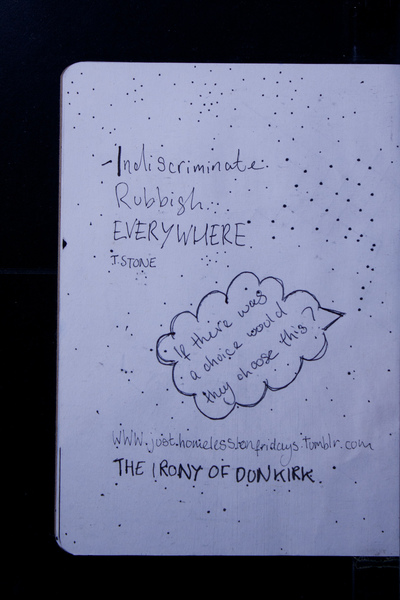 -Indiscriminate
Rubbish..
EVERYWHERE
J STONE
If there was
a choice would
they choose this?
www.just.homelessonfridays.tumblr.com
THE IRONY OF DONKIRK.